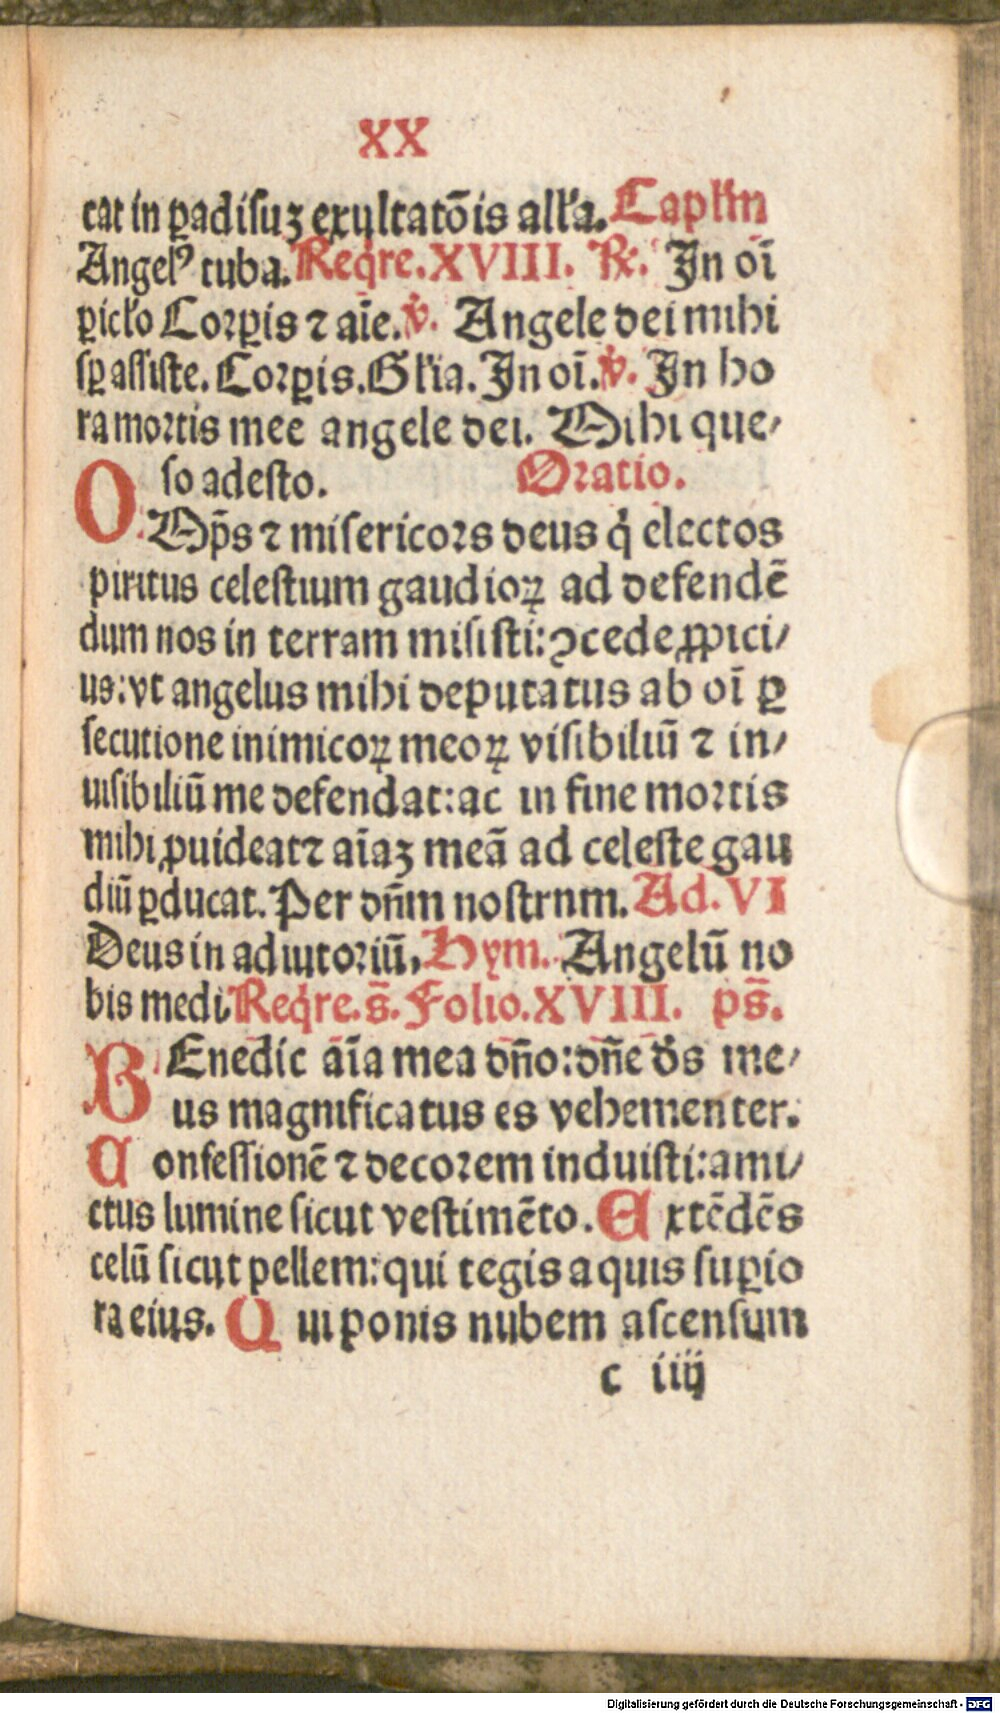 XX
cat in ꝑadisuʒ exultatōis allꝛa. Caplm̄
Angelꝰ tuba. Reqͥre. XVIII. ℟. In oī
ꝑiclo Corꝑis ⁊ aīe. ℣. Angele dei mihi
sꝑ assiste. Corꝑis. Glꝛia. In oī. ℣. In ho
ra mortis mee angele dei. Mihi que⸗
so adesto. Oratio.
O Mp̄s ⁊ misericors deus qͥ electos
piritus celestium gaudioꝝ ad defendē
dum nos in terram misisti: ꝯcede ꝓpici⸗
us: vt angelus mihi deputatus ab oī ꝑ
secutione inimicoꝝ meoꝝ visibiliū ⁊ in⸗
uisibiliū me defendat: ac in fine mortis
mihi ꝓuideat ⁊ aīaʒ meā ad celeste gau
diū ꝑducat. Per dn̄m nostrnm. Ad. VI
Deus in adiutoriū, Hym. Angelū no
bis medi. Reqͥre. s̄. Folio. XVIII. ps̄.
BEnedic aīa mea dn̄o: dn̄e ds̄ me⸗
us magnificatus es vehementer.
Confessionē ⁊ decorem induisti: ami⸗
ctus lumine sicut vestimēto. Extēdēs
celū sicut pellem: qui tegis aquis suꝑio
ra eius. Qui ponis nubem ascensum
c iiij
Digitalisierung gefördert durch die Deutsche Forschungsgemeinschaft - DFG